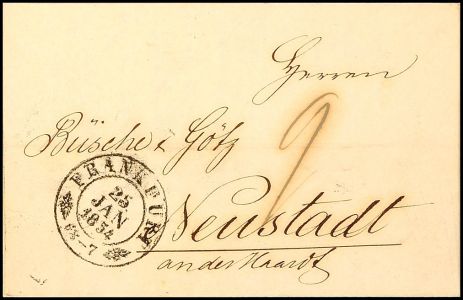 Herren
Büsche & Götz
Neustadt
an der Haardt
FRANKFURT
25
JAN
1854
6½-7